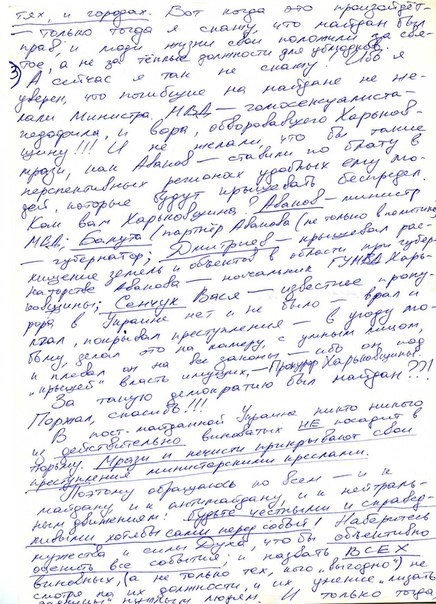 тях, и городах. Вот когда это произойдёт —
— только тогда я скажу, что майдан был
прав и люди жизни свои положили за свя-
тое, а не за тёплые должности для ублюдков.
3) А сейчас я так не скажу! Ибо я
уверен, что погибшие на майдане не же-
лали Министра МВД — гомосексуалиста-
педофила, и вора, обворовавшего Харьков-
щину!!! И не желали, что бы такие
мрази, как Аваков — ставили по блату в
перспективных регионах удобных ему лю-
дей, которые будут крышевать беспредел.
Ком вам Харьковщина? Аваков — министр
МВД; Балута (партнёр Авакова (не только в политике)
— губернатор; Дмитриев — крышевал рас-
хищение земель и объектов в области при губер-
наторстве Авакова — начальник ГУМВД Харь-
ковщины; Сенчук Вася — известное
в Украине нет и не было — врал и
лгал, покрывал преступления — в угоду
делал это на камеру, с умным лицом,
и плевал он на все законы — ибо он под
"крышей" власть имущих, — Прокурор Харьковщины!
За такую демократию был майдан??!
Поржал, спасибо!!!
В пост-майданной Украине никто никого
из действительно виноватых НЕ посадит в
тюрьму. Мрази и нечисти прикрывают свои
преступления министерскими креслами.
Поэтому обращаюсь ко всем — и к
майдану и к антимайдану, и к нейтраль-
ным движениям: будьте честными и справед-
ливыми хотя бы сами перед собой! Наберитесь
мужества и силы Духа, что бы объективно
оценить все события, и назвать ВСЕХ
виновных, (а не только тех, кого "выгодно") не
смотря на их должности, и их умение "лизать
нужным людям. И только тогда